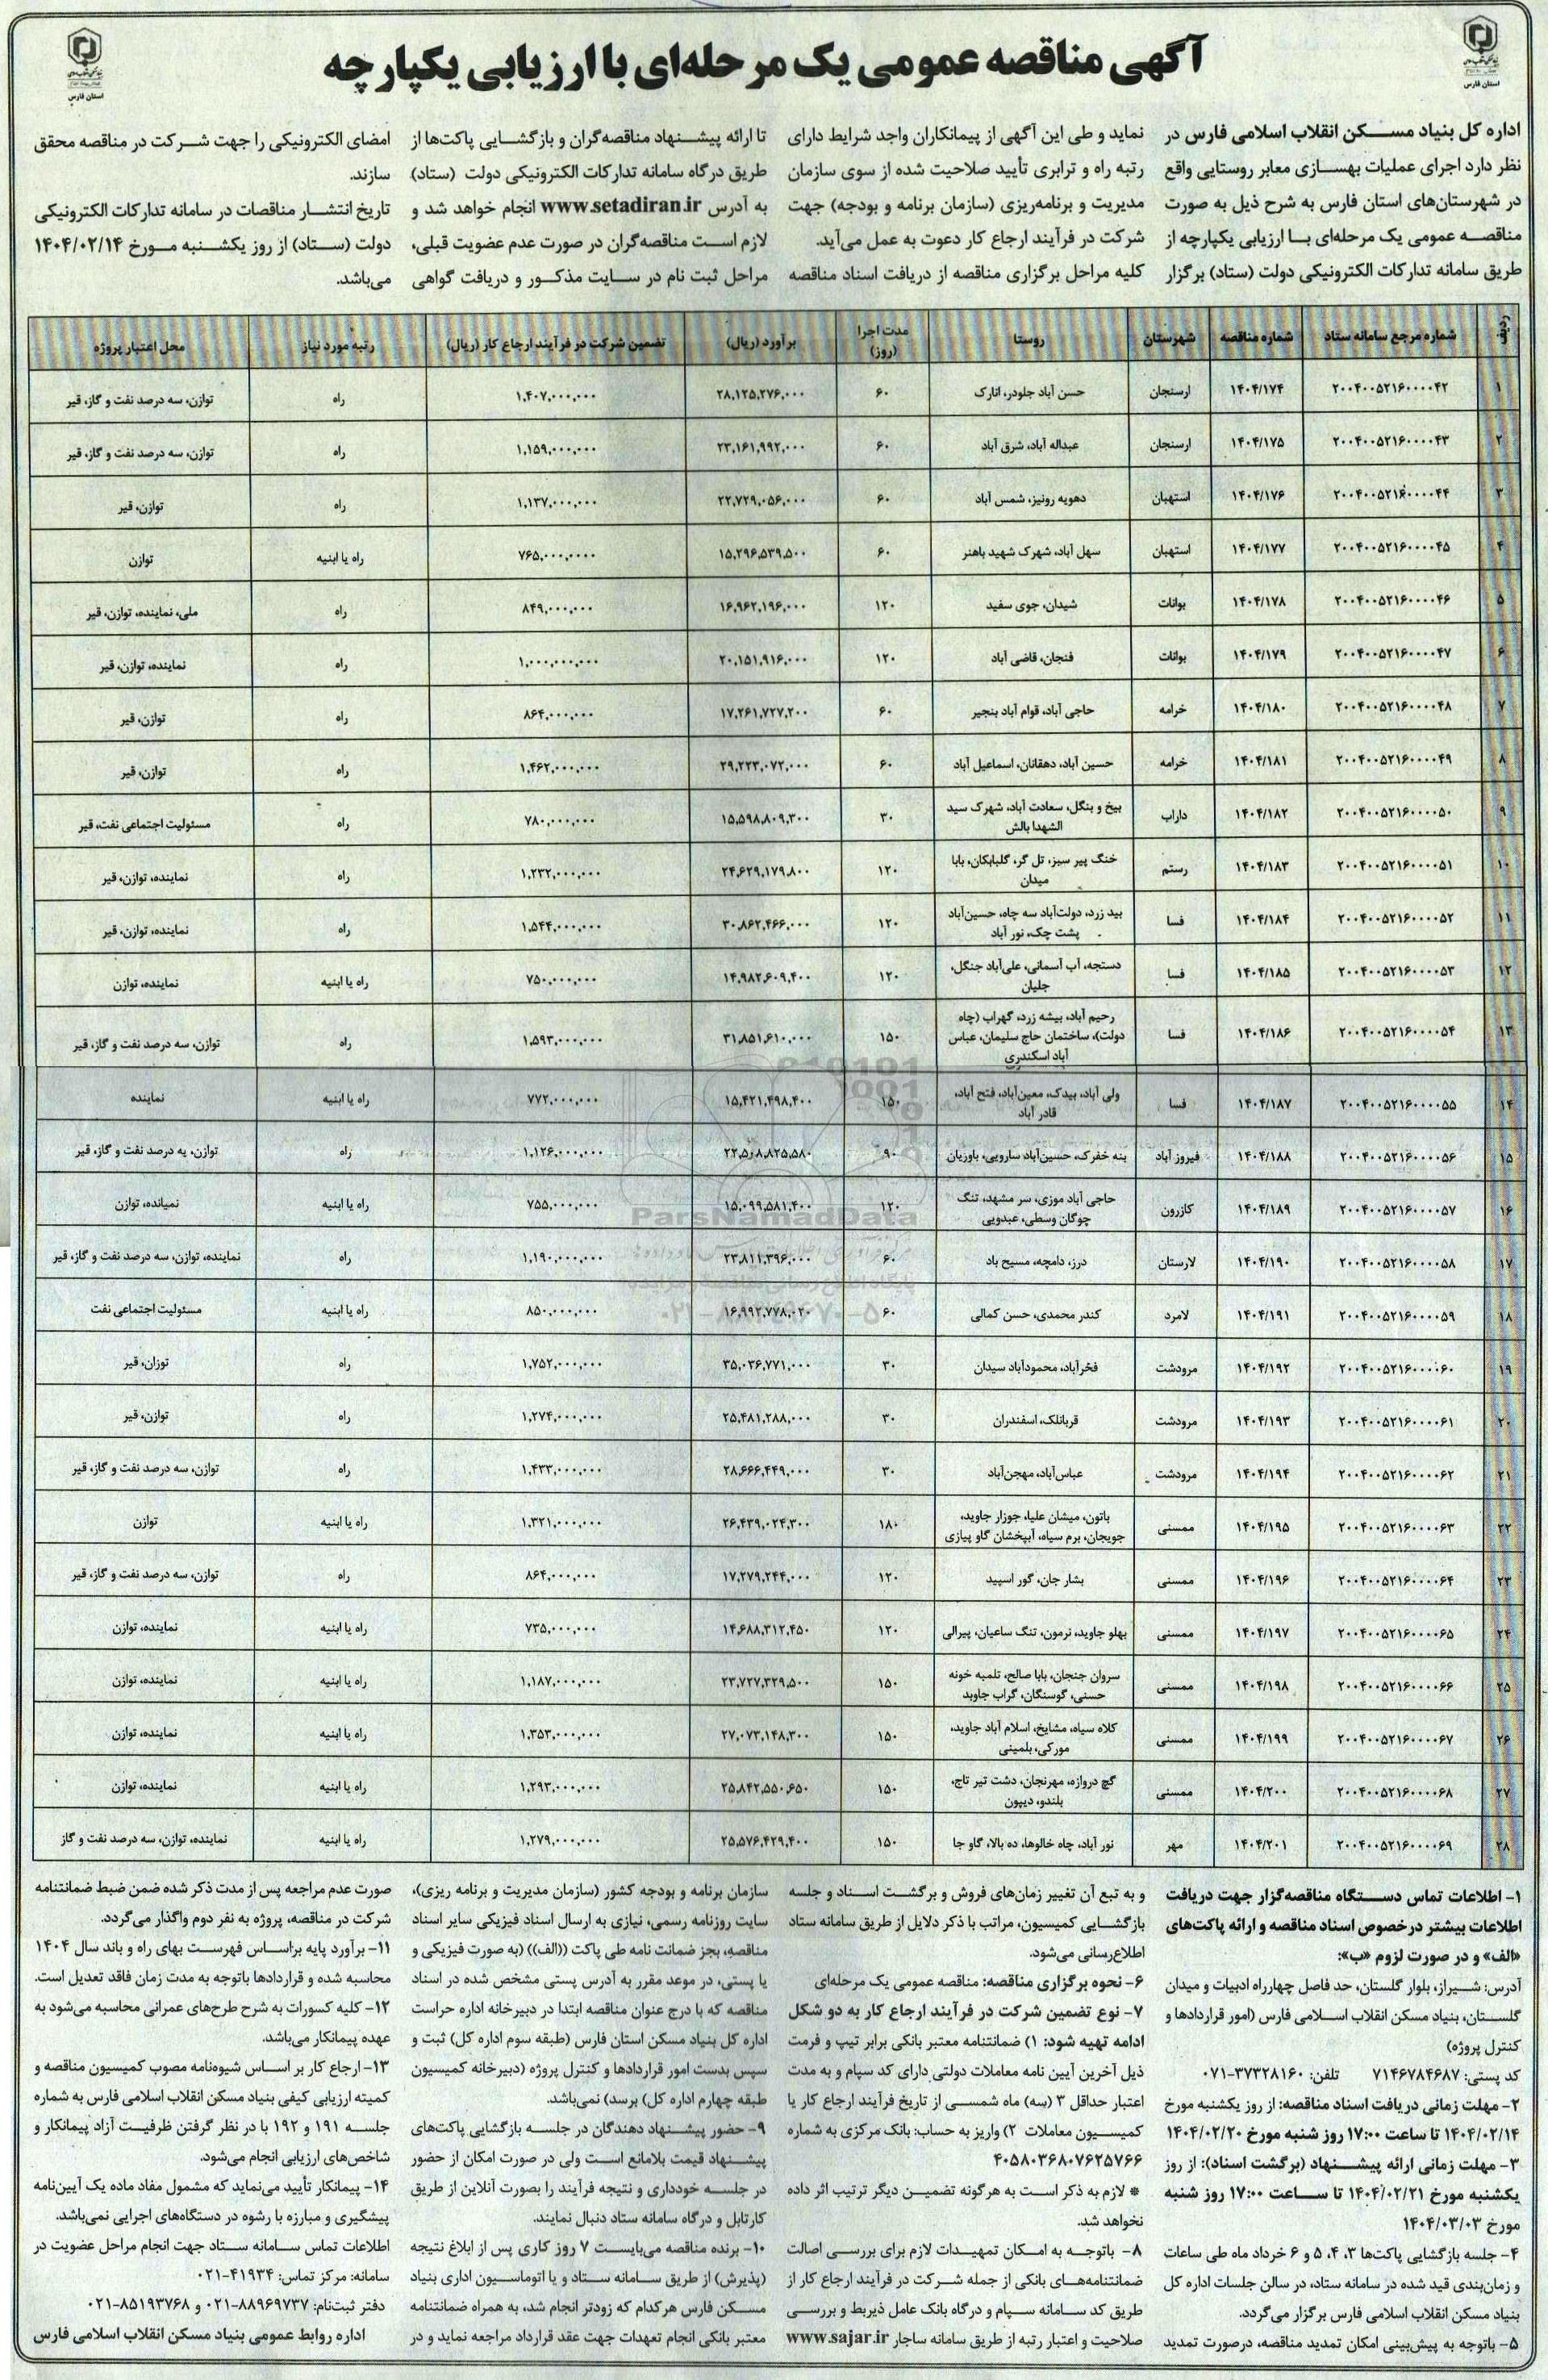 آگهی مناقصه عمومی یک مرحله‌ای با ارزیابی یکپارچه
استان فارس
استان فارس
اداره کل بنیاد مسکن انقلاب اسلامی فارس در
نظر دارد اجرای عملیات بهسازی معابر روستایی واقع
در شهرستان‌های استان فارس به شرح ذیل به صورت
مناقصه عمومی یک مرحله‌ای با ارزیابی یکپارچه از
طریق سامانه تدارکات الکترونیکی دولت (ستاد) برگزار
نماید و طی این آگهی از پیمانکاران واجد شرایط دارای
رتبه راه و ترابری تأیید صلاحیت شده از سوی سازمان
مدیریت و برنامه‌ریزی (سازمان برنامه و بودجه) جهت
شرکت در فرآیند ارجاع کار دعوت به عمل می‌آید.
کلیه مراحل برگزاری مناقصه از دریافت اسناد مناقصه
تا ارائه پیشنهاد مناقصه‌گران و بازگشایی پاکت‌ها از
طریق درگاه سامانه تدارکات الکترونیکی دولت (ستاد)
به آدرس www.setadiran.ir انجام خواهد شد و
لازم است مناقصه‌گران در صورت عدم عضویت قبلی،
مراحل ثبت نام در سایت مذکور و دریافت گواهی
امضای الکترونیکی را جهت شرکت در مناقصه محقق
سازند.
تاریخ انتشار مناقصات در سامانه تدارکات الکترونیکی
دولت (ستاد) از روز یکشنبه مورخ ۱۴۰۴/۰۲/۱۴
می‌باشد.
ردیف | شماره مرجع سامانه ستاد | شماره مناقصه | شهرستان | روستا | مدت اجرا (روز) | برآورد (ریال) | تضمین شرکت در فرآیند ارجاع کار (ریال) | رتبه مورد نیاز | محل اعتبار پروژه
۱ | ۲۰۰۴۰۰۵۲۱۶۰۰۰۰۴۲ | ۱۴۰۴/۱۷۴ | ارسنجان | حسن آباد جلودر، انارک | ۶۰ | ۲۸,۱۲۵,۲۷۶,۰۰۰ | ۱,۴۰۷,۰۰۰,۰۰۰ | راه | توازن، سه درصد نفت و گاز، قیر
۲ | ۲۰۰۴۰۰۵۲۱۶۰۰۰۰۴۳ | ۱۴۰۴/۱۷۵ | ارسنجان | عبداله آباد، شرق آباد | ۶۰ | ۲۳,۱۶۱,۹۹۲,۰۰۰ | ۱,۱۵۹,۰۰۰,۰۰۰ | راه | توازن، سه درصد نفت و گاز، قیر
۳ | ۲۰۰۴۰۰۵۲۱۶۰۰۰۰۴۴ | ۱۴۰۴/۱۷۶ | استهبان | دهویه رونیز، شمس آباد | ۶۰ | ۲۲,۷۲۹,۰۵۶,۰۰۰ | ۱,۱۳۷,۰۰۰,۰۰۰ | راه | توازن، قیر
۴ | ۲۰۰۴۰۰۵۲۱۶۰۰۰۰۴۵ | ۱۴۰۴/۱۷۷ | استهبان | سهل آباد، شهرک شهید باهنر | ۶۰ | ۱۵,۲۹۶,۵۳۹,۵۰۰ | ۷۶۵,۰۰۰,۰۰۰۰ | راه یا ابنیه | توازن
۵ | ۲۰۰۴۰۰۵۲۱۶۰۰۰۰۴۶ | ۱۴۰۴/۱۷۸ | بوانات | شیدان، جوی سفید | ۱۲۰ | ۱۶,۹۶۲,۱۹۶,۰۰۰ | ۸۴۹,۰۰۰,۰۰۰ | راه | ملی، نماینده، توازن، قیر
۶ | ۲۰۰۴۰۰۵۲۱۶۰۰۰۰۴۷ | ۱۴۰۴/۱۷۹ | بوانات | فنجان، قاضی آباد | ۱۲۰ | ۲۰,۱۵۱,۹۱۶,۰۰۰ | ۱,۰۰۰,۰۰۰,۰۰۰ | راه | نماینده، توازن، قیر
۷ | ۲۰۰۴۰۰۵۲۱۶۰۰۰۰۴۸ | ۱۴۰۴/۱۸۰ | خرامه | حاجی آباد، قوام آباد بنجیر | ۶۰ | ۱۷,۲۶۱,۷۲۷,۲۰۰ | ۸۶۴,۰۰۰,۰۰۰ | راه | توازن، قیر
۸ | ۲۰۰۴۰۰۵۲۱۶۰۰۰۰۴۹ | ۱۴۰۴/۱۸۱ | خرامه | حسین آباد، دهقانان، اسماعیل آباد | ۶۰ | ۲۹,۲۲۳,۰۷۲,۰۰۰ | ۱,۴۶۲,۰۰۰,۰۰۰ | راه | توازن، قیر
۹ | ۲۰۰۴۰۰۵۲۱۶۰۰۰۰۵۰ | ۱۴۰۴/۱۸۲ | داراب | بیخ و بنگل، سعادت آباد، شهرک سید الشهدا بالش | ۳۰ | ۱۵,۵۹۸,۸۰۹,۳۰۰ | ۷۸۰,۰۰۰,۰۰۰ | راه | مسئولیت اجتماعی نفت، قیر
۱۰ | ۲۰۰۴۰۰۵۲۱۶۰۰۰۰۵۱ | ۱۴۰۴/۱۸۳ | رستم | خنگ پیر سبز، تل گر، گلبابکان، بابا میدان | ۱۲۰ | ۲۴,۶۲۹,۱۷۹,۸۰۰ | ۱,۲۳۲,۰۰۰,۰۰۰ | راه | نماینده، توازن، قیر
۱۱ | ۲۰۰۴۰۰۵۲۱۶۰۰۰۰۵۲ | ۱۴۰۴/۱۸۴ | فسا | بید زرد، دولت‌آباد سه چاه، حسین‌آباد پشت چک، نور آباد | ۱۲۰ | ۳۰,۸۶۲,۴۶۶,۰۰۰ | ۱,۵۴۴,۰۰۰,۰۰۰ | راه | نماینده، توازن، قیر
۱۲ | ۲۰۰۴۰۰۵۲۱۶۰۰۰۰۵۳ | ۱۴۰۴/۱۸۵ | فسا | دستجه، آب آسمانی، علی‌آباد جنگل، جلیان | ۱۲۰ | ۱۴,۹۸۲,۶۰۹,۴۰۰ | ۷۵۰,۰۰۰,۰۰۰ | راه یا ابنیه | نماینده، توازن
۱۳ | ۲۰۰۴۰۰۵۲۱۶۰۰۰۰۵۴ | ۱۴۰۴/۱۸۶ | فسا | رحیم آباد، بیشه زرد، گهراب (چاه دولت)، ساختمان حاج سلیمان، عباس آباد اسکندری | ۱۵۰ | ۳۱,۸۵۱,۶۱۰,۰۰۰ | ۱,۵۹۳,۰۰۰,۰۰۰ | راه | توازن، سه درصد نفت و گاز، قیر
۱۴ | ۲۰۰۴۰۰۵۲۱۶۰۰۰۰۵۵ | ۱۴۰۴/۱۸۷ | فسا | ولی آباد، بیدک، معین‌آباد، فتح آباد، قادر آباد | ۱۵۰ | ۱۵,۴۲۱,۴۹۸,۴۰۰ | ۷۷۲,۰۰۰,۰۰۰ | راه یا ابنیه | نماینده
۱۵ | ۲۰۰۴۰۰۵۲۱۶۰۰۰۰۵۶ | ۱۴۰۴/۱۸۸ | فیروز آباد | بنه خفرک، حسین‌آباد سارویی، باوریان | ۹۰ | ۲۲,۵۰۸,۸۲۵,۵۸۰ | ۱,۱۲۶,۰۰۰,۰۰۰ | راه | توازن، یه درصد نفت و گاز، قیر
۱۶ | ۲۰۰۴۰۰۵۲۱۶۰۰۰۰۵۷ | ۱۴۰۴/۱۸۹ | کازرون | حاجی آباد موزی، سر مشهد، تنگ چوگان وسطی، عبدویی | ۱۲۰ | ۱۵,۰۹۹,۵۸۱,۴۰۰ | ۷۵۵,۰۰۰,۰۰۰ | راه یا ابنیه | نمیانده، توازن
۱۷ | ۲۰۰۴۰۰۵۲۱۶۰۰۰۰۵۸ | ۱۴۰۴/۱۹۰ | لارستان | درز، دامچه، مسیح باد | ۶۰ | ۲۳,۸۱۱,۳۹۶,۰۰۰ | ۱,۱۹۰,۰۰۰,۰۰۰ | راه | نماینده، توازن، سه درصد نفت و گاز، قیر
۱۸ | ۲۰۰۴۰۰۵۲۱۶۰۰۰۰۵۹ | ۱۴۰۴/۱۹۱ | لامرد | کندر محمدی، حسن کمالی | ۶۰ | ۱۶,۹۹۲,۷۷۸,۰۲۰ | ۸۵۰,۰۰۰,۰۰۰ | راه یا ابنیه | مسئولیت اجتماعی نفت
۱۹ | ۲۰۰۴۰۰۵۲۱۶۰۰۰۰۶۰ | ۱۴۰۴/۱۹۲ | مرودشت | فخرآباد، محمودآباد سیدان | ۳۰ | ۳۵,۰۳۶,۷۷۱,۰۰۰ | ۱,۷۵۲,۰۰۰,۰۰۰ | راه | توزان، قیر
۲۰ | ۲۰۰۴۰۰۵۲۱۶۰۰۰۰۶۱ | ۱۴۰۴/۱۹۳ | مرودشت | قربانلک، اسفندران | ۳۰ | ۲۵,۴۸۱,۲۸۸,۰۰۰ | ۱,۲۷۴,۰۰۰,۰۰۰ | راه | توازن، قیر
۲۱ | ۲۰۰۴۰۰۵۲۱۶۰۰۰۰۶۲ | ۱۴۰۴/۱۹۴ | مرودشت | عباس‌آباد، مهجن‌آباد | ۳۰ | ۲۸,۶۶۶,۴۴۹,۰۰۰ | ۱,۴۳۳,۰۰۰,۰۰۰ | راه | توازن، سه درصد نفت و گاز، قیر
۲۲ | ۲۰۰۴۰۰۵۲۱۶۰۰۰۰۶۳ | ۱۴۰۴/۱۹۵ | ممسنی | باتون، میشان علیا، جوزار جاوید، جویجان، برم سیاه، آبپخشان گاو پیازی | ۱۸۰ | ۲۶,۴۳۹,۰۲۴,۳۰۰ | ۱,۳۲۱,۰۰۰,۰۰۰ | راه یا ابنیه | توازن
۲۳ | ۲۰۰۴۰۰۵۲۱۶۰۰۰۰۶۴ | ۱۴۰۴/۱۹۶ | ممسنی | بشار جان، گور اسپید | ۱۲۰ | ۱۷,۲۷۹,۲۴۴,۰۰۰ | ۸۶۴,۰۰۰,۰۰۰ | راه | توازن، سه درصد نفت و گاز، قیر
۲۴ | ۲۰۰۴۰۰۵۲۱۶۰۰۰۰۶۵ | ۱۴۰۴/۱۹۷ | ممسنی | بهلو جاوید، نرمون، تنگ ساعیان، پیرالی | ۱۲۰ | ۱۴,۶۸۸,۳۱۲,۴۵۰ | ۷۳۵,۰۰۰,۰۰۰ | راه یا ابنیه | نماینده، توازن
۲۵ | ۲۰۰۴۰۰۵۲۱۶۰۰۰۰۶۶ | ۱۴۰۴/۱۹۸ | ممسنی | سروان جنجان، بابا صالح، تلمبه خونه حسنی، گوسنگان، گراب جاوید | ۱۵۰ | ۲۳,۷۲۷,۳۲۹,۵۰۰ | ۱,۱۸۷,۰۰۰,۰۰۰ | راه یا ابنیه | نماینده، توازن
۲۶ | ۲۰۰۴۰۰۵۲۱۶۰۰۰۰۶۷ | ۱۴۰۴/۱۹۹ | ممسنی | کلاه سیاه، مشایخ، اسلام آباد جاوید، مورکی، بلمینی | ۱۵۰ | ۲۷,۰۷۳,۱۴۸,۳۰۰ | ۱,۳۵۳,۰۰۰,۰۰۰ | راه یا ابنیه | نماینده، توازن
۲۷ | ۲۰۰۴۰۰۵۲۱۶۰۰۰۰۶۸ | ۱۴۰۴/۲۰۰ | ممسنی | گچ دروازه، مهرنجان، دشت تیر تاج، بلندو، دیپون | ۱۵۰ | ۲۵,۸۴۲,۵۵۰,۶۵۰ | ۱,۲۹۳,۰۰۰,۰۰۰ | راه یا ابنیه | نماینده، توازن
۲۸ | ۲۰۰۴۰۰۵۲۱۶۰۰۰۰۶۹ | ۱۴۰۴/۲۰۱ | مهر | نور آباد، چاه خالوها، ده بالا، گاو جا | ۱۵۰ | ۲۵,۵۷۶,۴۲۹,۴۰۰ | ۱,۲۷۹,۰۰۰,۰۰۰ | راه یا ابنیه | نماینده، توازن، سه درصد نفت و گاز
ParsNamadData
۱- اطلاعات تماس دستگاه مناقصه‌گزار جهت دریافت
اطلاعات بیشتر درخصوص اسناد مناقصه و ارائه پاکت‌های
«الف» و در صورت لزوم «ب»:
آدرس: شیراز، بلوار گلستان، حد فاصل چهارراه ادبیات و میدان
گلستان، بنیاد مسکن انقلاب اسلامی فارس (امور قراردادها و
کنترل پروژه)
کد پستی: ۷۱۴۶۷۸۴۶۸۷ تلفن: ۳۷۳۲۸۱۶۰-۰۷۱
۲- مهلت زمانی دریافت اسناد مناقصه: از روز یکشنبه مورخ
۱۴۰۴/۰۲/۱۴ تا ساعت ۱۷:۰۰ روز شنبه مورخ ۱۴۰۴/۰۲/۲۰
۳- مهلت زمانی ارائه پیشنهاد (برگشت اسناد): از روز
یکشنبه مورخ ۱۴۰۴/۰۲/۲۱ تا ساعت ۱۷:۰۰ روز شنبه
مورخ ۱۴۰۴/۰۳/۰۳
۴- جلسه بازگشایی پاکت‌ها ۳، ۴، ۵ و ۶ خرداد ماه طی ساعات
و زمان‌بندی قید شده در سامانه ستاد، در سالن جلسات اداره کل
بنیاد مسکن انقلاب اسلامی فارس برگزار می‌گردد.
۵- باتوجه به پیش‌بینی امکان تمدید مناقصه، درصورت تمدید
و به تبع آن تغییر زمان‌های فروش و برگشت اسناد و جلسه
بازگشایی کمیسیون، مراتب با ذکر دلایل از طریق سامانه ستاد
اطلاع‌رسانی می‌شود.
۶- نحوه برگزاری مناقصه: مناقصه عمومی یک مرحله‌ای
۷- نوع تضمین شرکت در فرآیند ارجاع کار به دو شکل
ادامه تهیه شود: ۱) ضمانتنامه معتبر بانکی برابر تیپ و فرمت
ذیل آخرین آیین نامه معاملات دولتی دارای کد سپام و به مدت
اعتبار حداقل ۳ (سه) ماه شمسی از تاریخ فرآیند ارجاع کار یا
کمیسیون معاملات ۲) واریز به حساب: بانک مرکزی به شماره
۴۰۵۸۰۳۶۸۰۷۶۲۵۷۶۶
* لازم به ذکر است به هرگونه تضمین دیگر ترتیب اثر داده
نخواهد شد.
۸- باتوجه به امکان تمهیدات لازم برای بررسی اصالت
ضمانتنامه‌های بانکی از جمله شرکت در فرآیند ارجاع کار از
طریق کد سامانه سپام و درگاه بانک عامل ذیربط و بررسی
صلاحیت و اعتبار رتبه از طریق سامانه ساجار www.sajar.ir
سازمان برنامه و بودجه کشور (سازمان مدیریت و برنامه ریزی)،
سایت روزنامه رسمی، نیازی به ارسال اسناد فیزیکی سایر اسناد
مناقصه، بجز ضمانت نامه طی پاکت ((الف)) (به صورت فیزیکی و
یا پستی، در موعد مقرر به آدرس پستی مشخص شده در اسناد
مناقصه که با درج عنوان مناقصه ابتدا در دبیرخانه اداره حراست
اداره کل بنیاد مسکن استان فارس (طبقه سوم اداره کل) ثبت و
سپس بدست امور قراردادها و کنترل پروژه (دبیرخانه کمیسیون
طبقه چهارم اداره کل) برسد) نمی‌باشد.
۹- حضور پیشنهاد دهندگان در جلسه بازگشایی پاکت‌های
پیشنهاد قیمت بلامانع است ولی در صورت امکان از حضور
در جلسه خودداری و نتیجه فرآیند را بصورت آنلاین از طریق
کارتابل و درگاه سامانه ستاد دنبال نمایند.
۱۰- برنده مناقصه می‌بایست ۷ روز کاری پس از ابلاغ نتیجه
(پذیرش) از طریق سامانه ستاد و یا اتوماسیون اداری بنیاد
مسکن فارس هرکدام که زودتر انجام شد، به همراه ضمانتنامه
معتبر بانکی انجام تعهدات جهت عقد قرارداد مراجعه نماید و در
صورت عدم مراجعه پس از مدت ذکر شده ضمن ضبط ضمانتنامه
شرکت در مناقصه، پروژه به نفر دوم واگذار می‌گردد.
۱۱- برآورد پایه براساس فهرست بهای راه و باند سال ۱۴۰۴
محاسبه شده و قراردادها باتوجه به مدت زمان فاقد تعدیل است.
۱۲- کلیه کسورات به شرح طرح‌های عمرانی محاسبه می‌شود به
عهده پیمانکار می‌باشد.
۱۳- ارجاع کار بر اساس شیوه‌نامه مصوب کمیسیون مناقصه و
کمیته ارزیابی کیفی بنیاد مسکن انقلاب اسلامی فارس به شماره
جلسه ۱۹۱ و ۱۹۲ با در نظر گرفتن ظرفیت آزاد پیمانکار و
شاخص‌های ارزیابی انجام می‌شود.
۱۴- پیمانکار تأیید می‌نماید که مشمول مفاد ماده یک آیین‌نامه
پیشگیری و مبارزه با رشوه در دستگاه‌های اجرایی نمی‌باشد.
اطلاعات تماس سامانه ستاد جهت انجام مراحل عضویت در
سامانه: مرکز تماس: ۴۱۹۳۴-۰۲۱
دفتر ثبت‌نام: ۸۸۹۶۹۷۳۷-۰۲۱ و ۸۵۱۹۳۷۶۸-۰۲۱
اداره روابط عمومی بنیاد مسکن انقلاب اسلامی فارس